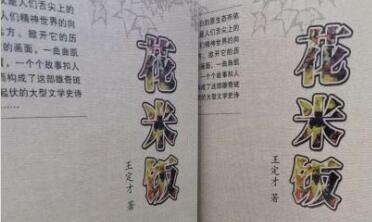 是人们舌尖上的
们精神世界的向
方。掀开它的历
的画面，一曲曲凯
一个个故事扣人
构成了这部雄奇斑
起伏的大型文学史诗
花米饭
王定才 著
的原生态
是人们舌尖上的
们精神世界的向
掀开它的历
的画面，一曲曲凯
一个个故事扣人
构成了这部雄奇斑
伏的大型文学史诗
花米饭
王定才 著